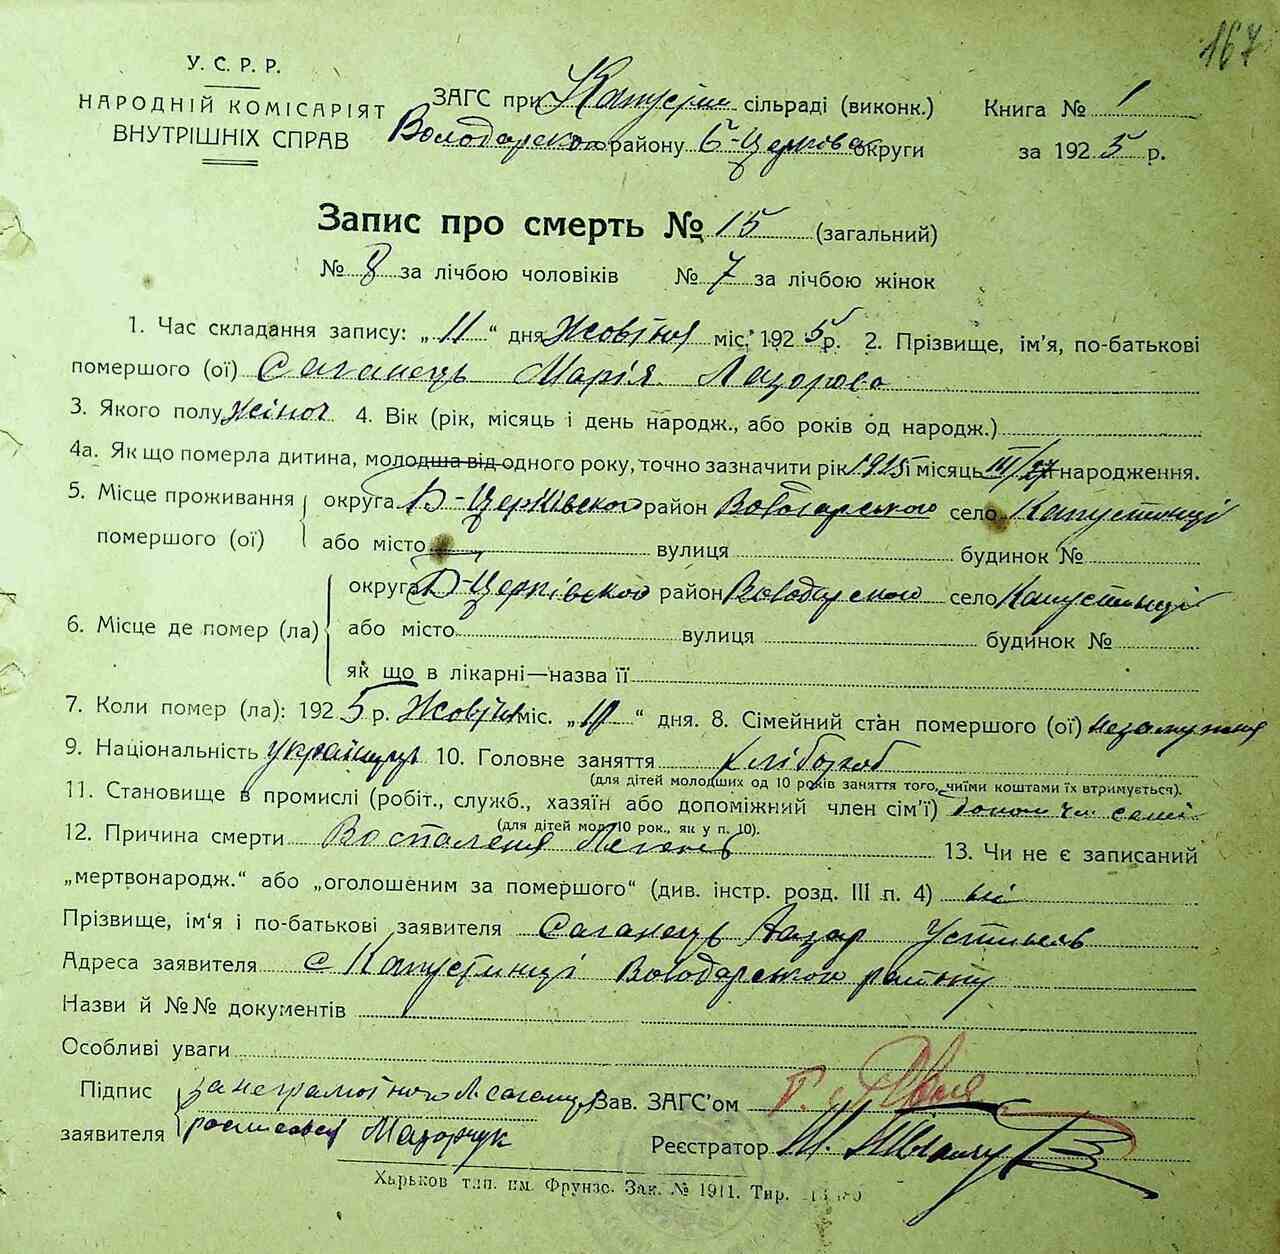 167
У. С. Р. Р.
НАРОДНІЙ КОМІСАРІЯТ
ВНУТРІШНІХ СПРАВ
ЗАГС при Капустін сільраді (виконк.)
Володарского району Б-Церковс округи
Книга № 1
за 1925 р.
Запис про смерть № 15 (загальний)
№ 8 за лічбою чоловіків № 7 за лічбою жінок
1. Час складання запису: „11“ дня Жовтня міс. 1925 р. 2. Прізвище, ім'я, по-батькові
помершого (ої) Саганець Марія Лазорова
3. Якого полу жіноч 4. Вік (рік, місяць і день народж., або років од народж.)
4а. Як що померла дитина, молодша від одного року, точно зазначити рік 1925 і місяць III/27 народження.
5. Місце проживання помершого (ої)
округа Б-Церківского район Володарського село Капустинці
або місто вулиця будинок №
6. Місце де помер (ла)
округа Б-Церківского район Володарского село Капустинці
або місто вулиця будинок №
як що в лікарні—назва її
7. Коли помер (ла): 1925 р. Жовтня міс. „10“ дня. 8. Сімейний стан помершого (ої) незамужня
9. Національність українців 10. Головне заняття хлібороб
(для дітей молодших од 10 років заняття того, чиїми коштами їх втримується).
11. Становище в промислі (робіт., служб., хазяїн або допоміжний член сім'ї) допом чл семі
(для дітей мол. 10 рок., як у п. 10).
12. Причина смерти Воспаленя Легенів 13. Чи не є записаний
„мертвонародж.“ або „оголошеним за помершого“ (див. інстр. розд. III п. 4) ні
Прізвище, ім'я і по-батькові заявителя Саганець Лазар Устимов
Адреса заявителя с Капустинці Володарського району
Назви й №№ документів
Особливі уваги
Підпис заявителя за неграмотного Л. Саганця
росписався Мазорчук
Зав. ЗАГС'ом
Реєстратор
Харьков тип. им. Фрунзе. Зак. № 1911. Тир.